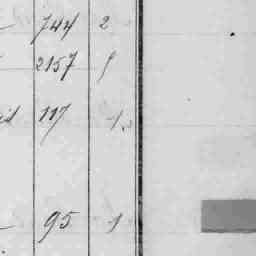 744 2
2157 1
117 1
95 1